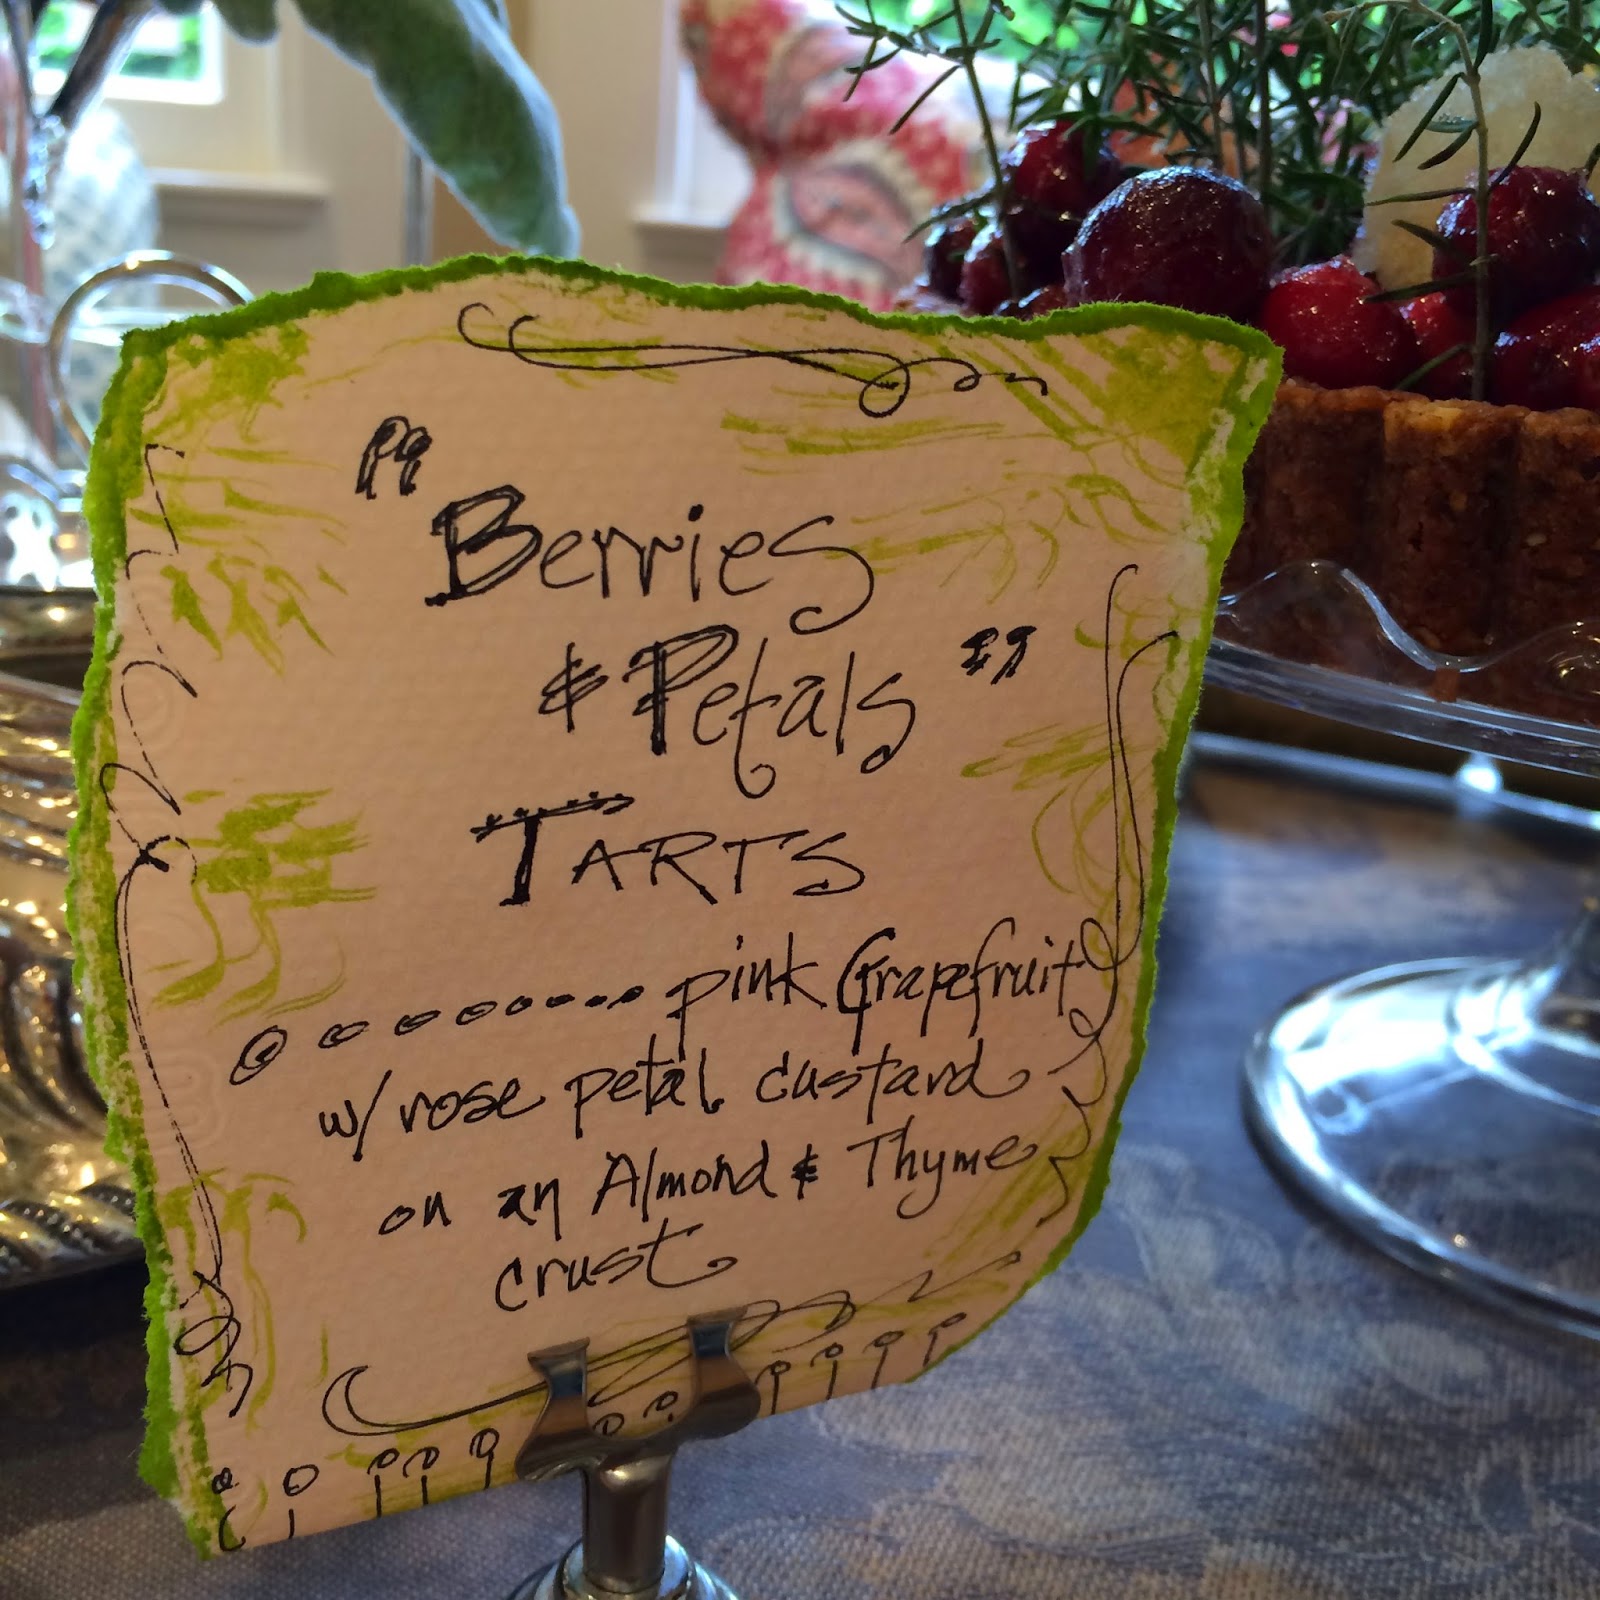 "Berries
& Petals"
TARTS
pink Grapefruit
w/ rose petal custard
on an Almond & Thyme
crust